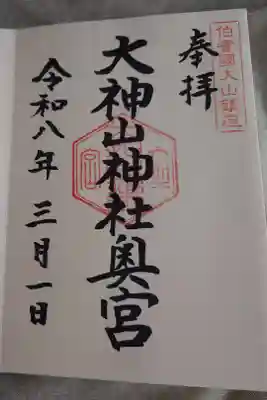 奉拝
伯耆國大山鎮座
大神山神社奥宮
令和八年三月一日